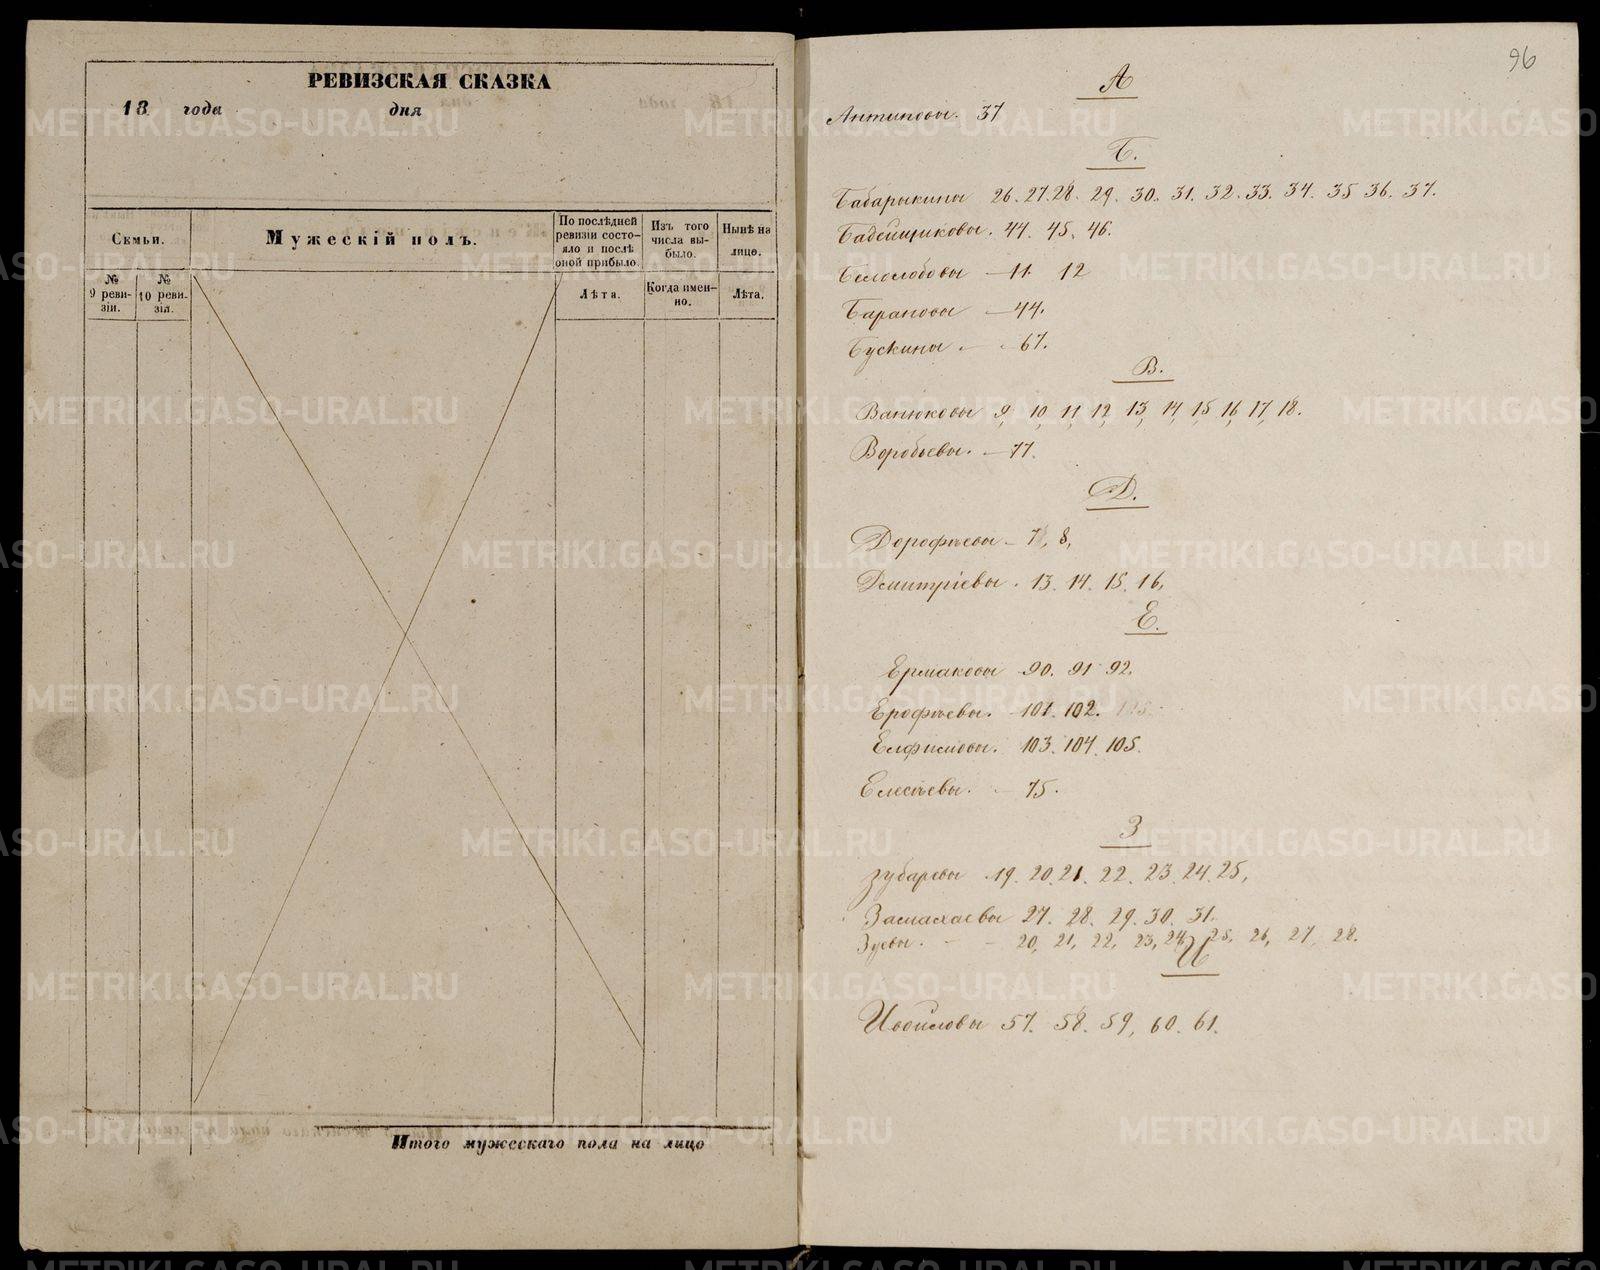 РЕВИЗСКАЯ СКАЗКА
18 года дня
Семьи.
Мужескій полъ.
По послѣдней ревизіи состояло и послѣ оной прибыло.
Изъ того числа выбыло.
Нынѣ на лицо.
№ 9 ревизіи.
№ 10 ревизіи.
Лѣта.
Когда именно.
Лѣта.
Итого мужескаго пола на лицо
96
А
Антиповы. 37
Б.
Бабарыкины 26. 27. 28. 29. 30. 31. 32. 33. 34. 35 36. 37.
Бадейщиковы. 44. 45. 46.
Белолобовы — 11. 12
Барановы — 44.
Бускины — 67.
В.
Ванюковы 9, 10, 11, 12, 13, 14, 15, 16, 17, 18.
Воробьевы. — 77.
Д.
Дорофѣевы — 7, 8,
Дмитріевы. 13. 14. 15. 16,
Е.
Ермаковы 90. 91 92.
Ерофѣевы. 101. 102.
Елфимовы. 103. 104. 105.
Елесѣевы. — 75.
З
Зубаревы 19. 20. 21. 22. 23. 24. 25,
Замахаевы 27. 28. 29. 30. 31.
Зуевы. — — 20, 21, 22, 23, 24, 25. 26, 27, 28.
И
57. 58. 59, 60. 61.
METRIKI.GASO-URAL.RU